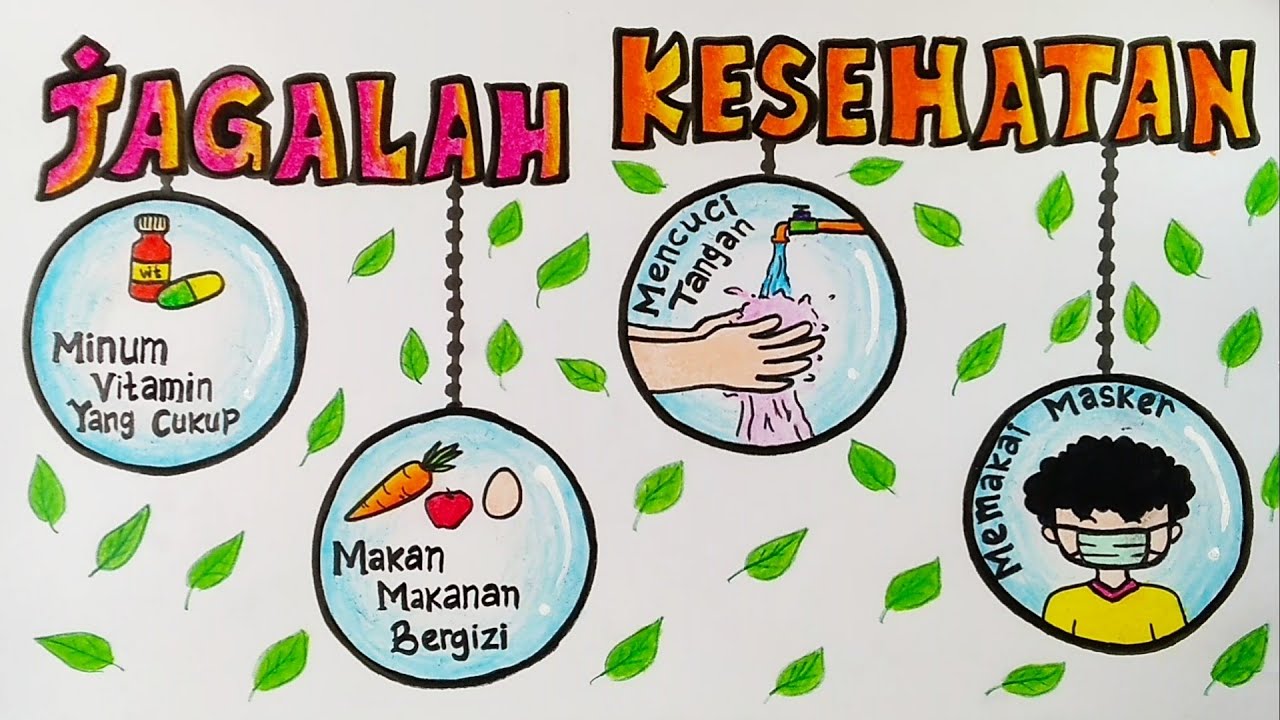 JAGALAH KESEHATAN
Vit
Minum
Vitamin
Yang Cukup
Makan
Makanan
Bergizi
Mencuci
Tangan
Memakai Masker